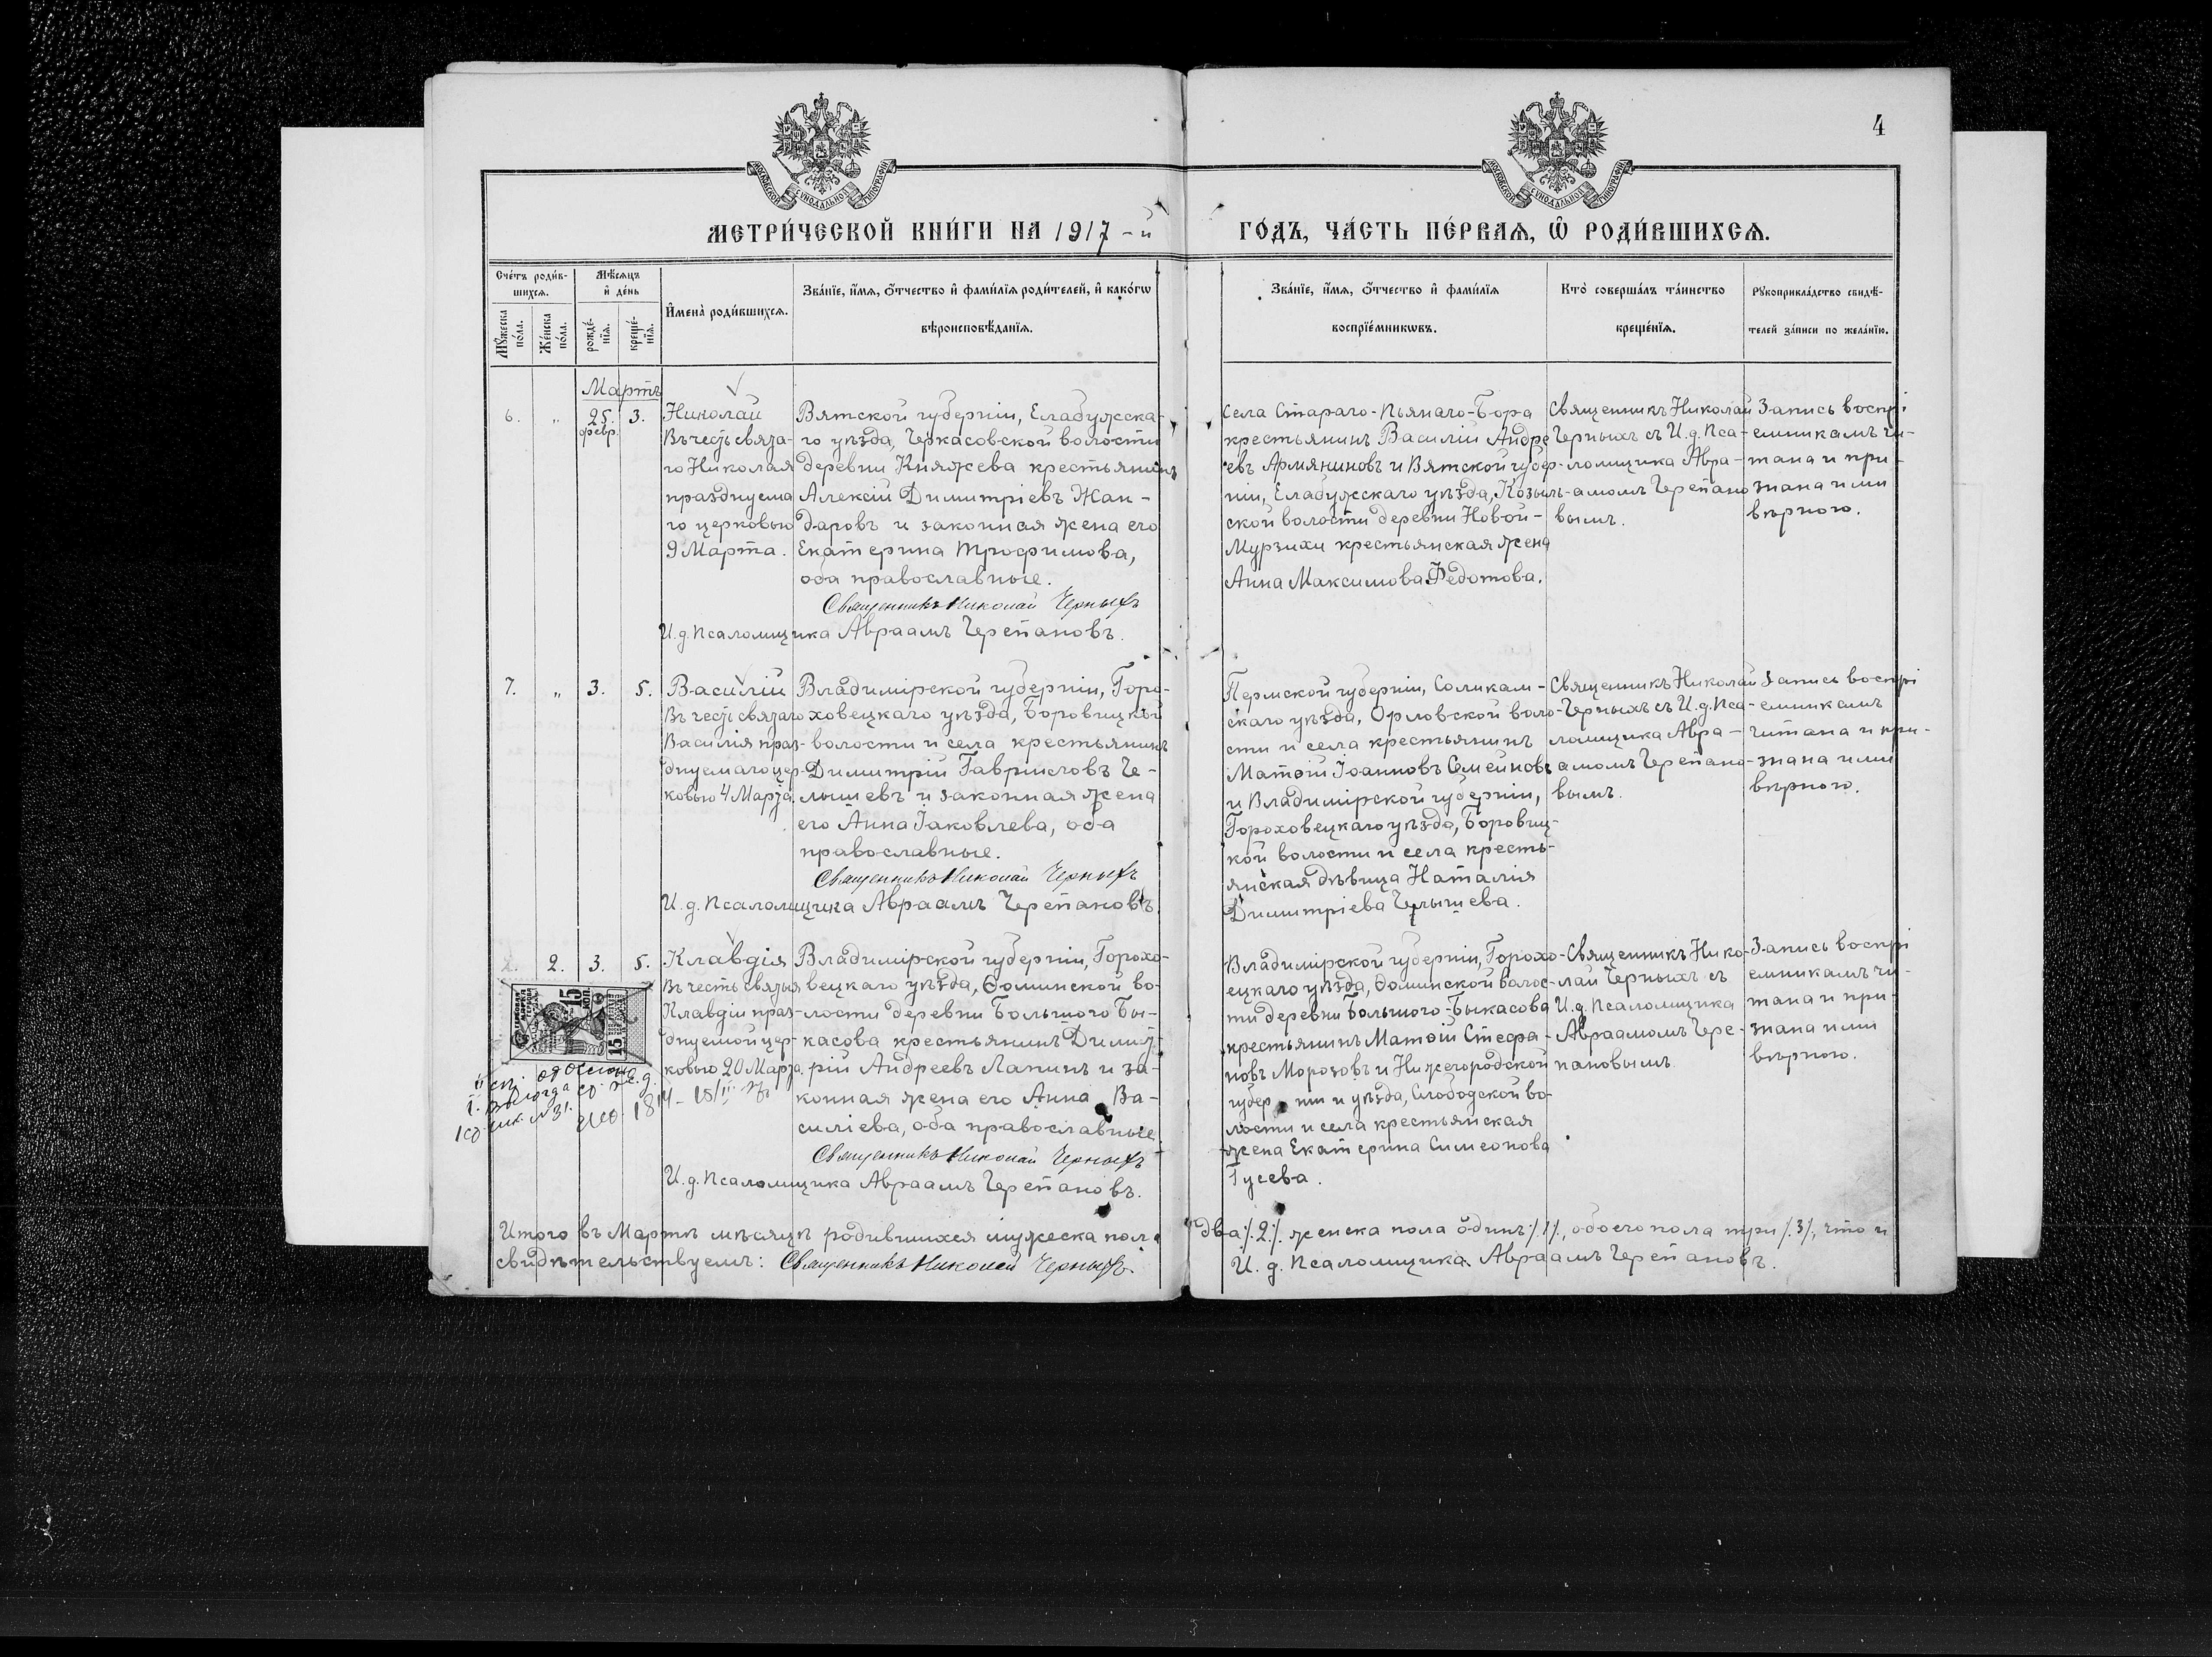 4
МОСКОВСКОЙ СѴНОДАЛЬНОЙ ТИПОГРАФІИ
МОСКОВСКОЙ СѴНОДАЛЬНОЙ ТИПОГРАФІИ
МЕТРИ́ЧЕСКОЙ КНИ́ГИ НА 1917-й ГО́ДЪ, ЧА́СТЬ ПЕ́РВАѦ, Ѿ РОДИ́ВШИХСѦ.
Сче́тъ роди́в-
шихсѧ.
Мꙋ́жеска по́ла.
Же́нска по́ла.
Мѣ́сѧцъ
и҆ де́нь
рожде́-
нїѧ.
креще́-
нїѧ.
И҆мена̀ роди́вшихсѧ.
Зва́нїе, и҆́мѧ, о҆́тчество и҆ фами́лїѧ роди́телей, и҆ како́гѡ
вѣроисповѣ́данїѧ.
Зва́нїе, и҆́мѧ, о҆́тчество и҆ фами́лїѧ
воспрїе́мникѡвъ.
Кто̀ соверша́лъ та́инство
креще́нїѧ.
Рꙋкоприкла́дство свидѣ́-
телей за́писи по жела́нїю.
Мартъ
6. „ 25. февр. 3.
Николай
Въ честь свята-
го Николая
празднуема
го церковью
9 Марта.
Вятской губерніи, Елабужска-
го уѣзда, Черкасовской волости
деревни Княжева крестьянинъ
Алексій Димитріевъ Жан-
даровъ и законная жена его
Екатерина Трофимова,
оба православные.
Священникъ Николай Черныхъ
И. д. Псаломщика Авраамъ Черепановъ.
села Стараго-Пьянаго-Бора
крестьянинъ Василій Андре
евъ Армяниновъ и Вятской губер-
ніи, Елабужскаго уѣзда, Козыль-
ской волости деревни Новой-
Мурзихи крестьянская жена
Анна Максимова Федотова.
Священникъ Николай
Черныхъ съ И. д. Пса-
ломщика Авра-
амомъ Черепано
вымъ.
Запись воспрі
емникамъ чи-
тана и при-
знана ими
вѣрною.
7. „ 3. 5.
Василій
Въ честь святаго
Василія праз-
днуемаго цер-
ковью 4 Марта.
Владимірской губерніи, Горо-
ховецкаго уѣзда, Боровицкой
волости и села крестьянинъ
Димитрій Гавриловъ Че-
лышевъ и законная жена
его Анна Іаковлева, оба
православные.
Священникъ Николай Черныхъ
И. д. Псаломщика Авраамъ Черепановъ.
Пермской губерніи, Соликам-
скаго уѣзда, Орловской воло-
сти и села крестьянинъ
Матѳій Іоанновъ Семейновъ
и Владимірской губерніи,
Гороховецкаго уѣзда, Боровиц-
кой волости и села кресть-
янская дѣвица Наталія
Димитріева Челышева.
Священникъ Николай
Черныхъ съ И. д. Пса-
ломщика Авра-
амомъ Черепано-
вымъ.
Запись воспрі
емникамъ
читана и при-
знана ими
вѣрною.
2. 3. 5.
Клавдія
Въ честь святыя
Клавдіи праз-
днуемой цер-
ковью 20 Марта.
Владимірской губерніи, Горохо-
вецкаго уѣзда, Ѳоминской во-
лости деревни Большого Бы-
касова крестьянинъ Димит-
рій Андреевъ Лапинъ и за-
конная жена его Анна Ва-
силіева, оба православные.
Священникъ Николай Черныхъ
И. д. Псаломщика Авраамъ Черепановъ.
Владимірской губерніи, Горохо-
ецкаго уѣзда, Ѳоминской волос-
ти деревни Большого-Быкасова
крестьянинъ Матѳій Стефа-
новъ Морозовъ и Нижегородской
губерніи и уѣзда, Слободской во-
лости и села крестьянская
жена Екатерина Симеонова
Гусева.
Священникъ Нико-
лай Черныхъ съ
И. д. Псаломщика
Авраамомъ Чере-
пановымъ.
Запись воспрі
емникамъ чи-
тана и при-
знана ими
вѣрною.
15 КОП
15
Итого въ Мартѣ мѣсяцѣ родившихся мужеска пола два /.2/. женска пола одинъ /.1/., обоего пола три /.3/, что и
свидѣтельствуемъ: Священникъ Николай Черныхъ. И. д. Псаломщика Авраамъ Черепановъ.